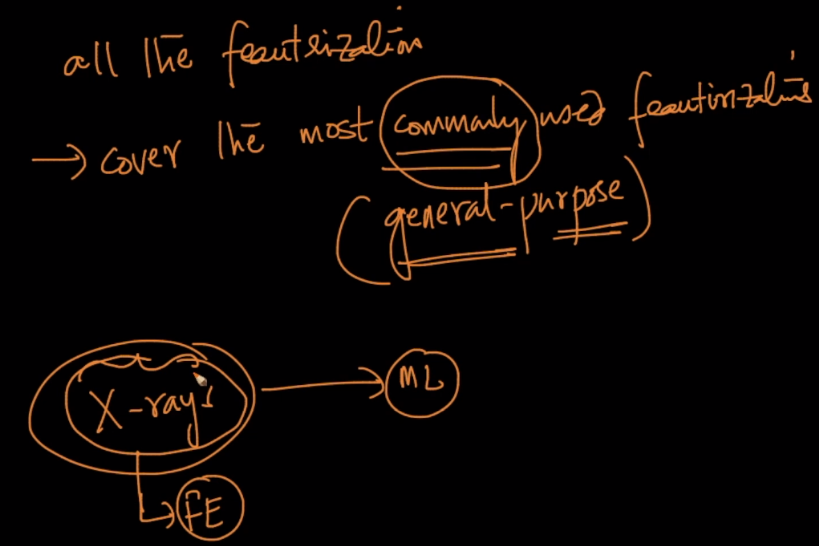 all the feauterization
→ cover the most commonly used feautirizations
(general-purpose)
X-rays → ML
FE